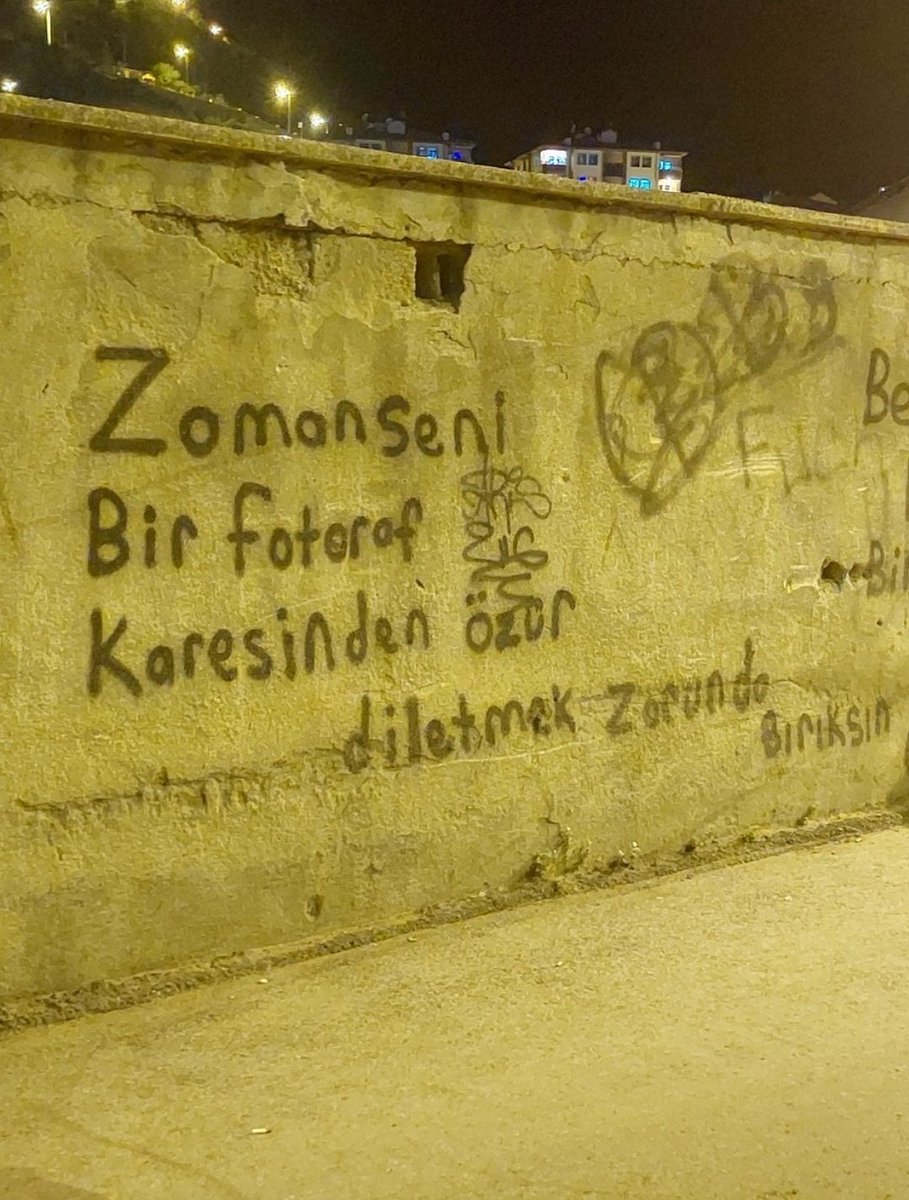 Zamanseni
Bir fotoraf
Karesinden özür
diletmek zorunda
Birıksın
Be
Bir